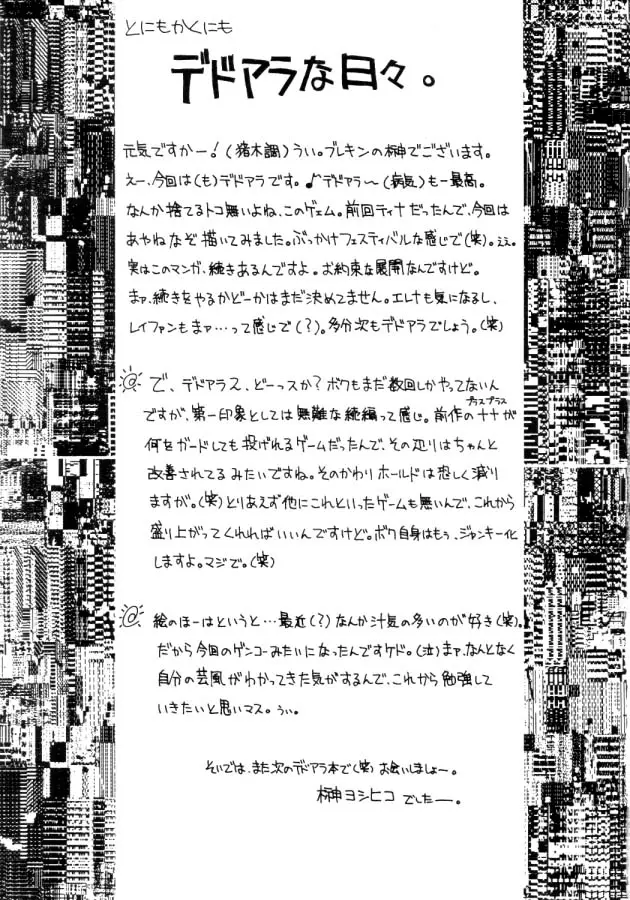 とにもかくにも
デドアラな日々。
元気ですかー!(猪木調)うぃ。ブレキンの榊でございます。
えー、今回は(も)デドアラです。♪デドアラ〜(病気)もー最高。
なんか捨てるトコ無いよね、このゲェム。前回ティナだったんで、今回は
あやねなぞ描いてみました。ぶっかけフェスティバルな感じで(笑)。ええ。
実はこのマンガ、続きあるんですよ。お約束な展開なんですけど。
まァ、続きをやるかどーかはまだ決めてません。エレナも気になるし、
レイファンもまァ…って感じで(?)。多分次もデドアラでしょう。(笑)
で、デドアラ2、どーっスか?ボクもまだ数回しかやってないん
ですが、第一印象としては無難な続編って感じ。前作の++が
プラスプラス
何をガードしても投げれるゲームだったんで、その辺りはちゃんと
改善されてるみたいですね。そのかわりホールドは悲しく減り
ますが。(笑)とりあえず他にこれといったゲームも無いんで、これから
盛り上がってくれればいいんですけど。ボク自身はもぅ、ジャンキー化
しますよ。マジで。(笑)
絵のほーはというと…最近(?)なんか汁気の多いのが好き(笑)。
だから今回のゲンコーみたいになったんですケド。(泣)まァ、なんとなく
自分の芸風がわかってきた気がするんで、これから勉強して
いきたいと思いマス。うぃ。
そいでは、また次のデドアラ本で(笑)お会いしましょー。
榊ヨシヒコ でしたー。